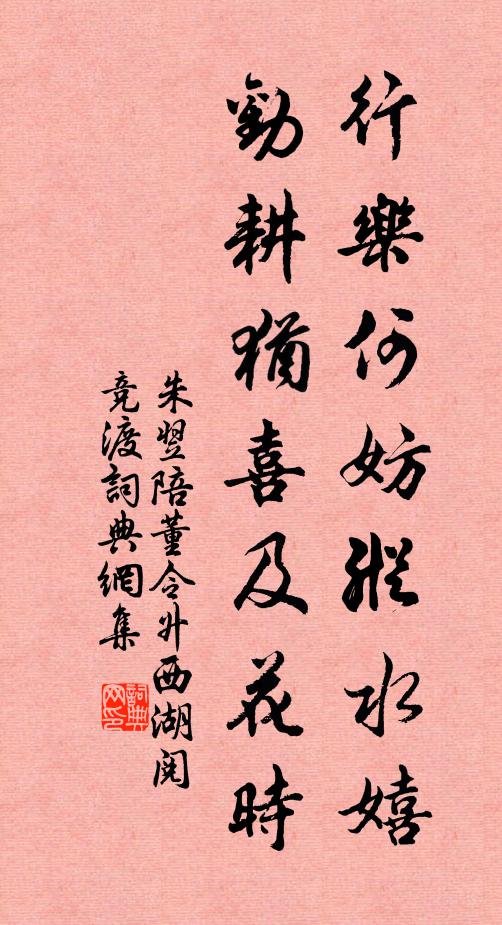 行樂何妨縱水嬉
勸耕猶喜及花時
朱翌陪董令升西湖閱
競渡詞典網集
詞典网印